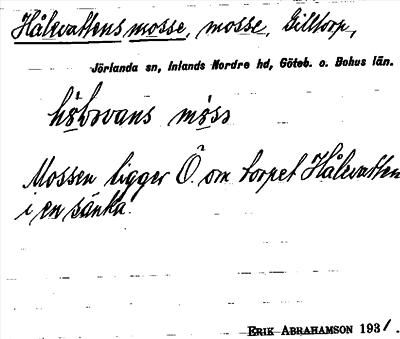 Hålevattens mosse, mosse, Gilltorp,
Jörlanda sn, Inlands Nordre hd, Göteb. o. Bohus län.
måss
Mossen ligger Ö. om torpet Hålevatten
i en sänka.
ERIK ABRAHAMSON 1931.